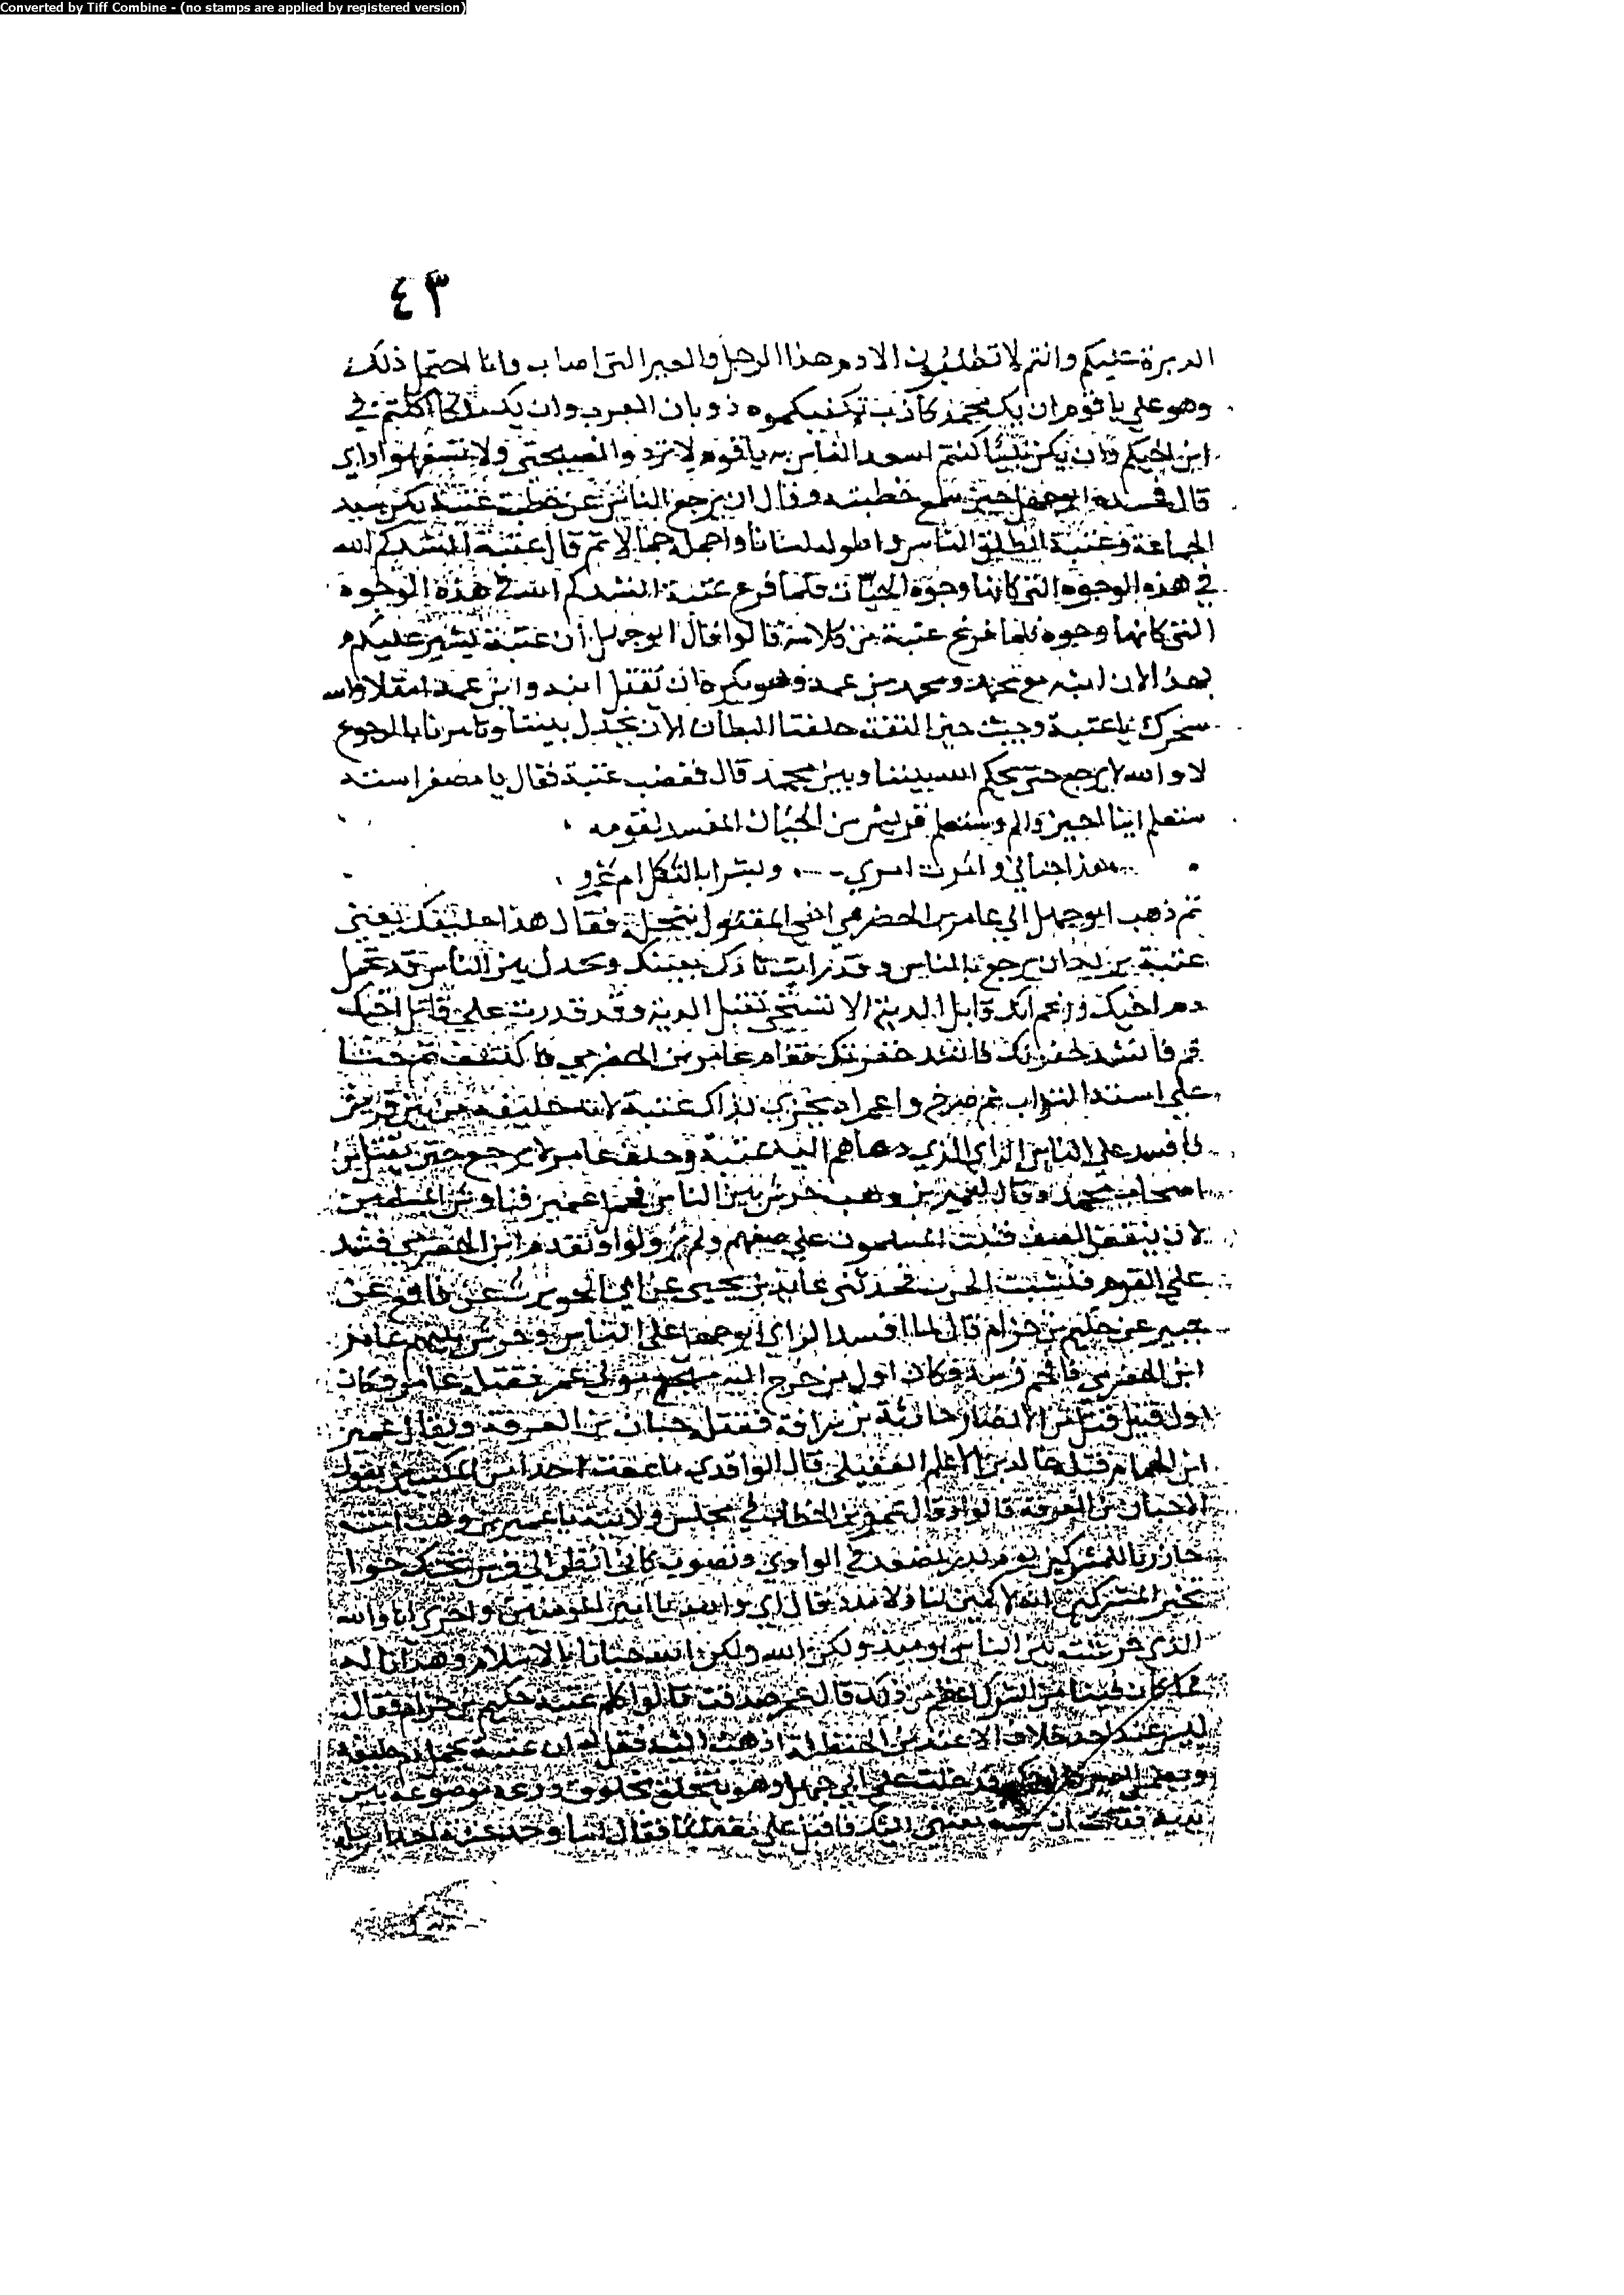 Converted by Tiff Combine - (no stamps are applied by registered version)
٤٣
الدبرة عليكم وانتم لا تطلبون الا دم هذا الرجل والعير التي اصاب وانا احتمل ذلك
وهو علي يا قوم ان يك محمد كاذبا يكفيكموه ذوبان العرب وان يك ملكا اكلتم في
ابن اخيكم وان يكن نبيا كنتم اسعد الناس به يا قوم لا تردوا نصيحتي ولا تسفهوا رايي
قال فحسده ابو جهل حين سمع خطبته وقال ان يرجع الناس عن خطبة عتبة يكن سيد
الجماعة وعتبة انطق الناس واطوله لسانا واجمله جمالا ثم قال عتبة انشدكم الله
في هذه الوجوه التي كانها وجوه الحيات فلما فرغ عتبة انشدكم الله في هذه الوجوه
التي كانها وجوه فلما فرغ عتبة من كلامه قالوا قال ابو جهل ان عتبة يشير عليكم
بهذا لان ابنه مع محمد ومحمد بن عمه وهو يكره ان يقتل ابنه وابن عمه امتلا والله
سحرك يا عتبة وجبنت حين التقت حلقتا البطان الان تخذل بيننا وتامرنا بالرجوع
لا والله لا نرجع حتى يحكم الله بيننا وبين محمد قال فغضب عتبة فقال يا مصفر استه
ستعلم اينا اجبن والم وستعلم قريش من الجبان المفسد لقومه
هذا جناي وامرت امري وبشرا بالثكل ام عمرو
ثم ذهب ابو جهل الي عامر بن الحضرمي اخي المقتول بنخلة فقال هذا حليفك يعني
عتبة يريد ان يرجع بالناس وقد رايت ثارك بعينك وتخذل بين الناس قد تحمل
دم اخيك وزعم انك قابل الدية الا تستحي تقبل الدية وقد قدرت علي قاتل اخيك
قم فانشد خفرتك فانشد خفرتك فقام عامر بن الحضرمي فاكتشف ثم حثا
علي استه التراب ثم صرخ واعمراه يخزي بذاك عتبة لانه حليفه من بين قريش
فافسد علي الناس الراي الذي دعاهم اليه عتبة وحلف عامر لا يرجع حتى يقتل من
اصحاب محمد وقال لعمير بن وهب حرش بين الناس فحمل عمير فناوش المسلمين
لان ينتقض الصف فثبت المسلمون علي صفهم ولم يزولوا وتقدم ابن الحضرمي فشد
علي القوم فنشبت الحرب فحدثني عايذ بن يحيى عن ابي الحويرث عن نافع بن
جبير عن حكيم بن حزام قال لما افسد الراي ابو جهل علي الناس وحرش بينهم عامر
ابن الحضرمي فاقحم فرسه فكان اول من خرج اليه مهجع مولي عمر فقتله عامر وكان
اول قتيل قتل من الانصار حارثة بن سراقة فقتله حبان بن العرقة ويقال عمير
ابن الحمام قتله خالد بن الاعلم العقيلي قال الواقدي ما سمعت احدا من المكيين يقول
الا حبان بن العرقة قالوا وقال عمر بن الخطاب في مجلس ولايته يا عمير بن وهب انت
حازرنا للمشركين يوم بدر تصعد في الوادي وتصوب كاني انظر الى فرسك تحتك
تخبر المشركين انه لا كمين لنا ولا مدد قال اي والله يا امير المومنين واخرى انا والله
الذي حرشت بين الناس يوميذ ولكن الله ولكن الله جانا بالاسلام وهدانا له
فما كان فينا من الشرك اعظم من ذلك قال عمر صدقت قالوا كلم عتبة حكيم بن حزام فقال
ليس عند احد خلاف الا عند بن الحنظلية اذهب اليه فقل له ان عتبة يحمل دم حليفه
فدخلت علي ابي جهل وهو يتخلق بخلوق ودرعه موضوعة بين
يديه فقلت ان عتبة بعثني اليك فاقبل علي مغضبا فقال اما وجد عتبة احدا يرسله